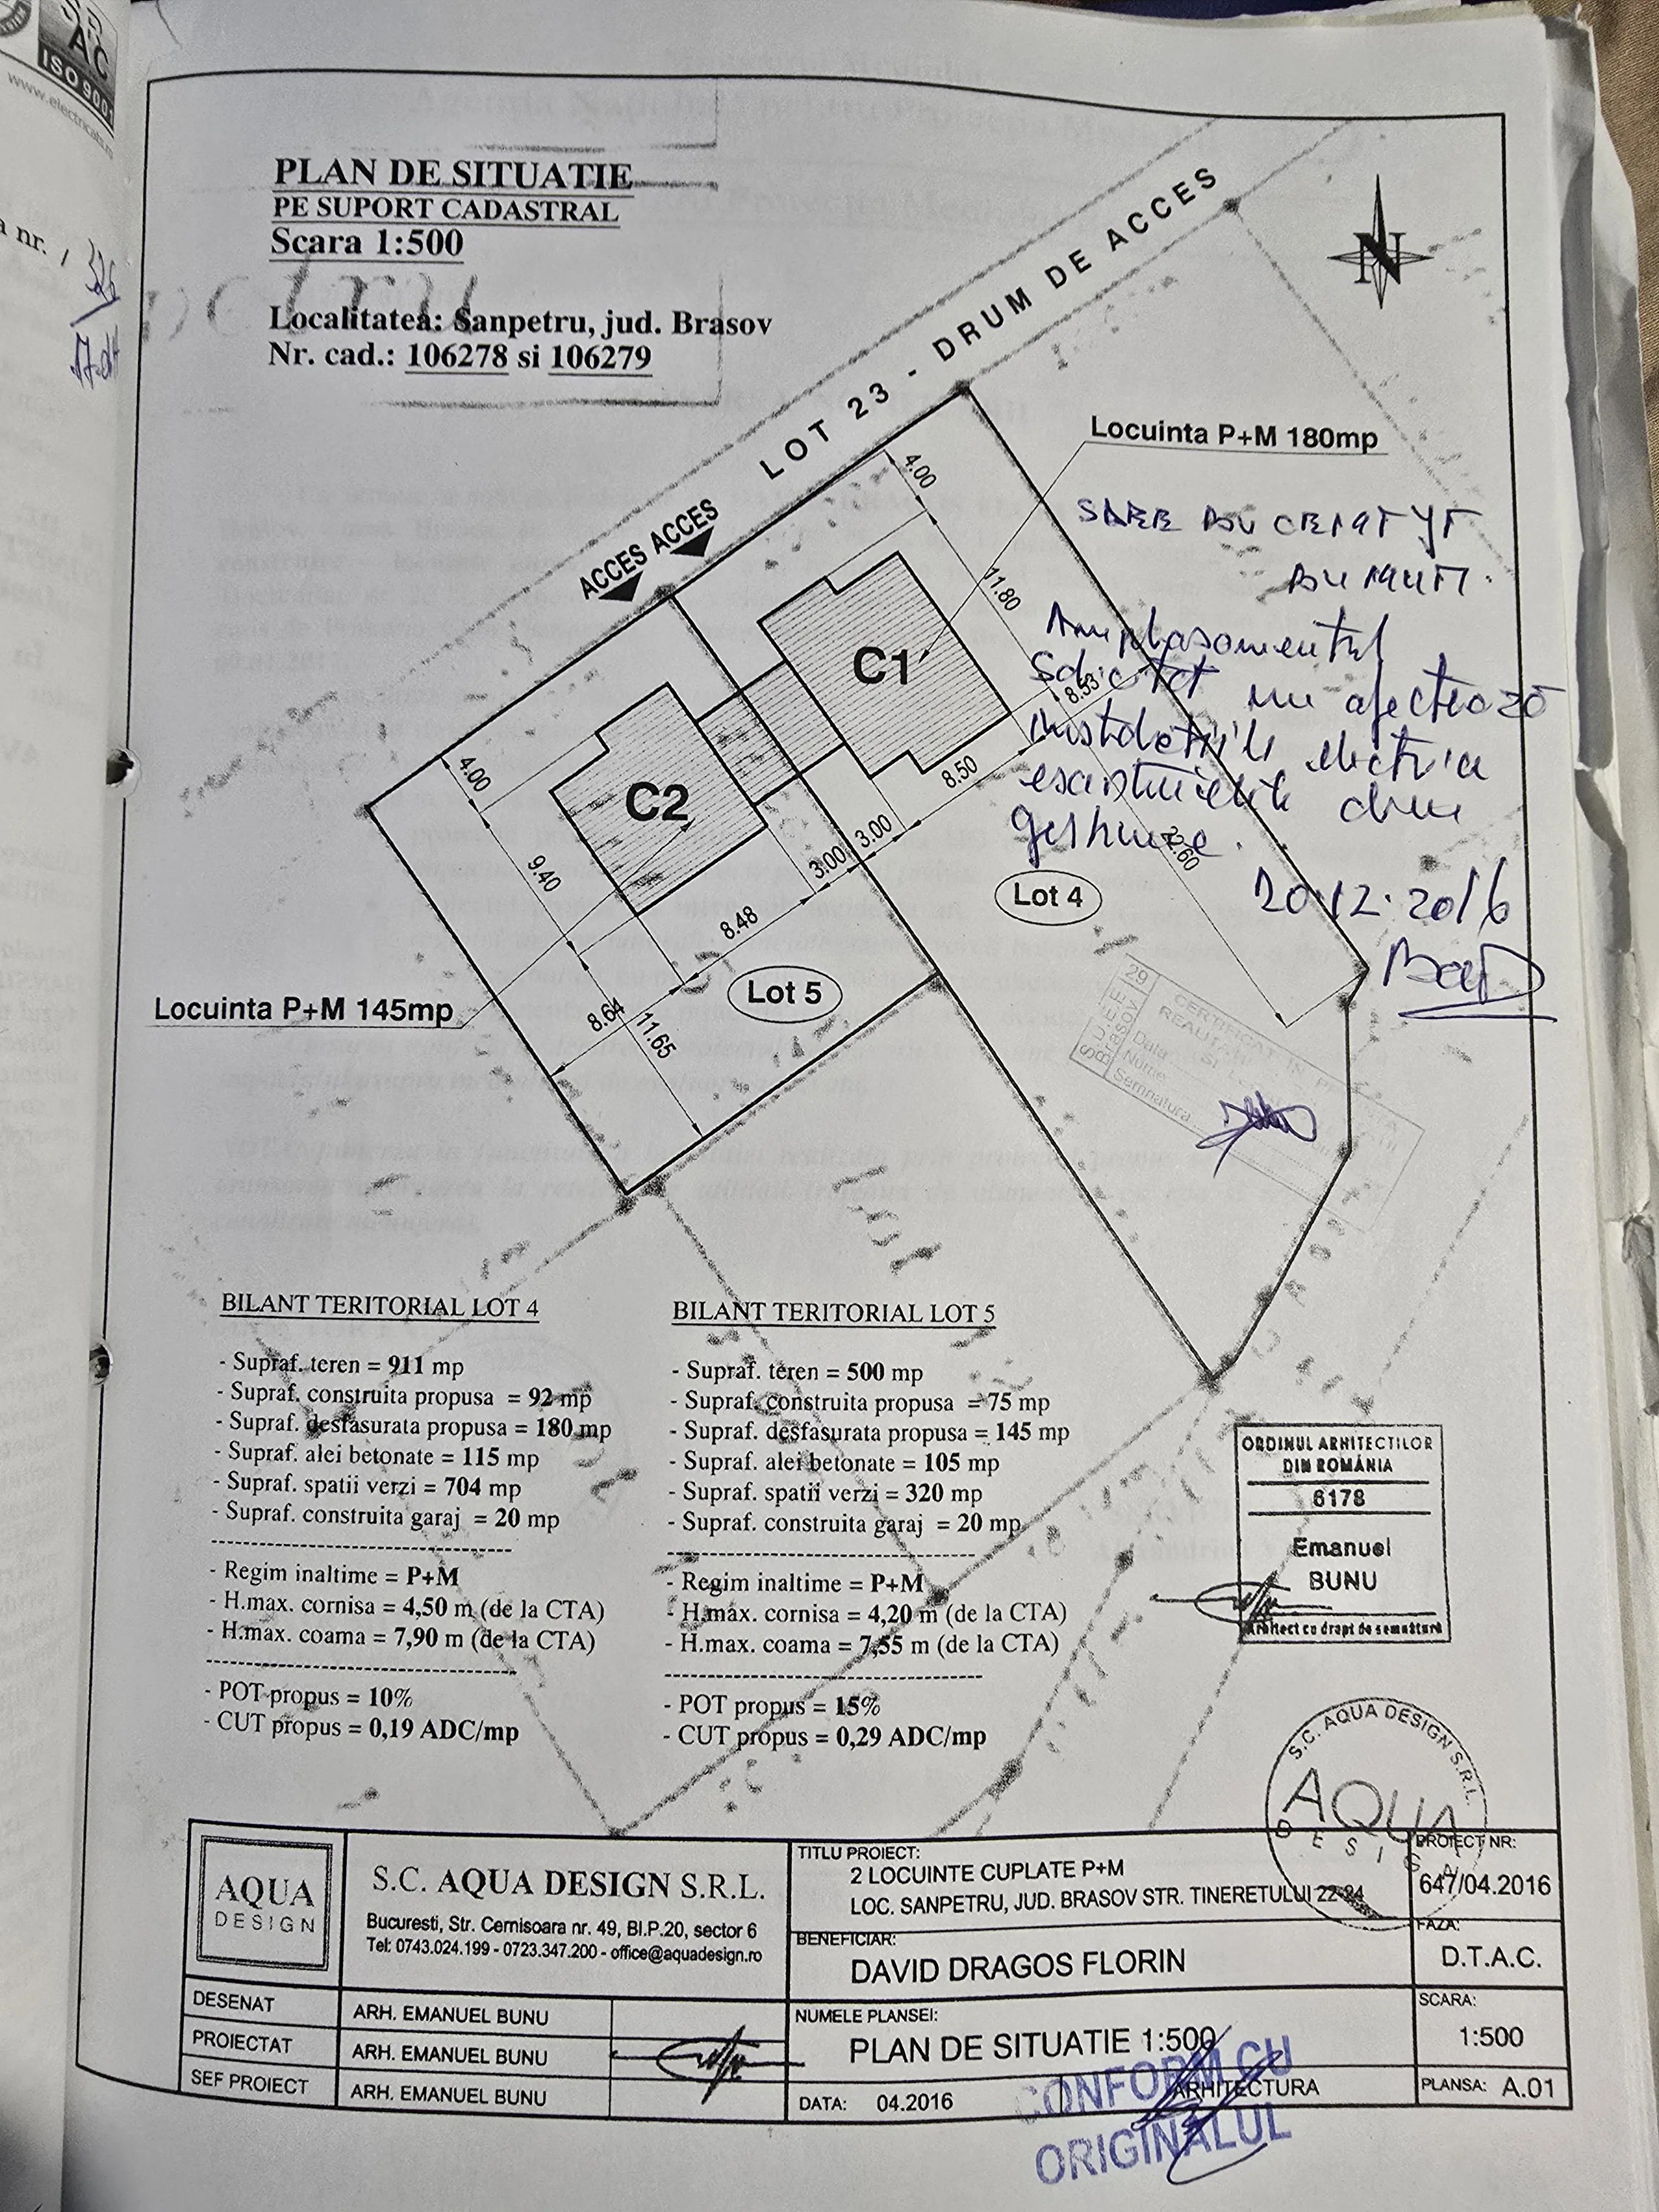 SRAC
ISO 9001
www.electricals.ro
a nr. /
326
PLAN DE SITUATIE
PE SUPORT CADASTRAL
Scara 1:500
Localitatea: Sanpetru, jud. Brasov
Nr. cad.: 106278 si 106279
LOT 23 - DRUM DE ACCES
N
ACCES ACCES
Locuinta P+M 180mp
Amplasamentul
solicitat nu afectează
instalațiile electrice
existente din
gestiune.
20.12.2016
4.00
11.80
8.53
C1
8.50
3.00
22.60
4.00
C2
9.40
3.00
8.48
Lot 4
Lot 5
Locuinta P+M 145mp
8.64
11.65
29
SUEE
Brasov
CERTIFICAT IN
Data
Nume
Semnatura
BILANT TERITORIAL LOT 4
- Supraf. teren = 911 mp
- Supraf. construita propusa = 92 mp
- Supraf. desfasurata propusa = 180 mp
- Supraf. alei betonate = 115 mp
- Supraf. spatii verzi = 704 mp
- Supraf. construita garaj = 20 mp
- Regim inaltime = P+M
- H.max. cornisa = 4,50 m (de la CTA)
- H.max. coama = 7,90 m (de la CTA)
- POT propus = 10%
- CUT propus = 0,19 ADC/mp
BILANT TERITORIAL LOT 5
- Supraf. teren = 500 mp
- Supraf. construita propusa = 75 mp
- Supraf. desfasurata propusa = 145 mp
- Supraf. alei betonate = 105 mp
- Supraf. spatii verzi = 320 mp
- Supraf. construita garaj = 20 mp
- Regim inaltime = P+M
- H.max. cornisa = 4,20 m (de la CTA)
- H.max. coama = 7,55 m (de la CTA)
- POT propus = 15%
- CUT propus = 0,29 ADC/mp
ORDINUL ARHITECTILOR
DIN ROMÂNIA
6178
Emanuel
BUNU
Arhitect cu drept de semnătură
S.C. AQUA DESIGN S.R.L.
AQUA
DESIGN
AQUA
DESIGN
S.C. AQUA DESIGN S.R.L.
Bucuresti, Str. Cernisoara nr. 49, Bl.P.20, sector 6
Tel: 0743.024.199 - 0723.347.200 - office@aquadesign.ro
DESENAT ARH. EMANUEL BUNU
PROIECTAT ARH. EMANUEL BUNU
SEF PROIECT ARH. EMANUEL BUNU
TITLU PROIECT:
2 LOCUINTE CUPLATE P+M
LOC. SANPETRU, JUD. BRASOV STR. TINERETULUI 22-24
BENEFICIAR:
DAVID DRAGOS FLORIN
NUMELE PLANSEI:
PLAN DE SITUATIE 1:500
DATA: 04.2016 ARHITECTURA
PROIECT NR:
647/04.2016
FAZA:
D.T.A.C.
SCARA:
1:500
PLANSA: A.01
CONFORM CU
ORIGINALUL